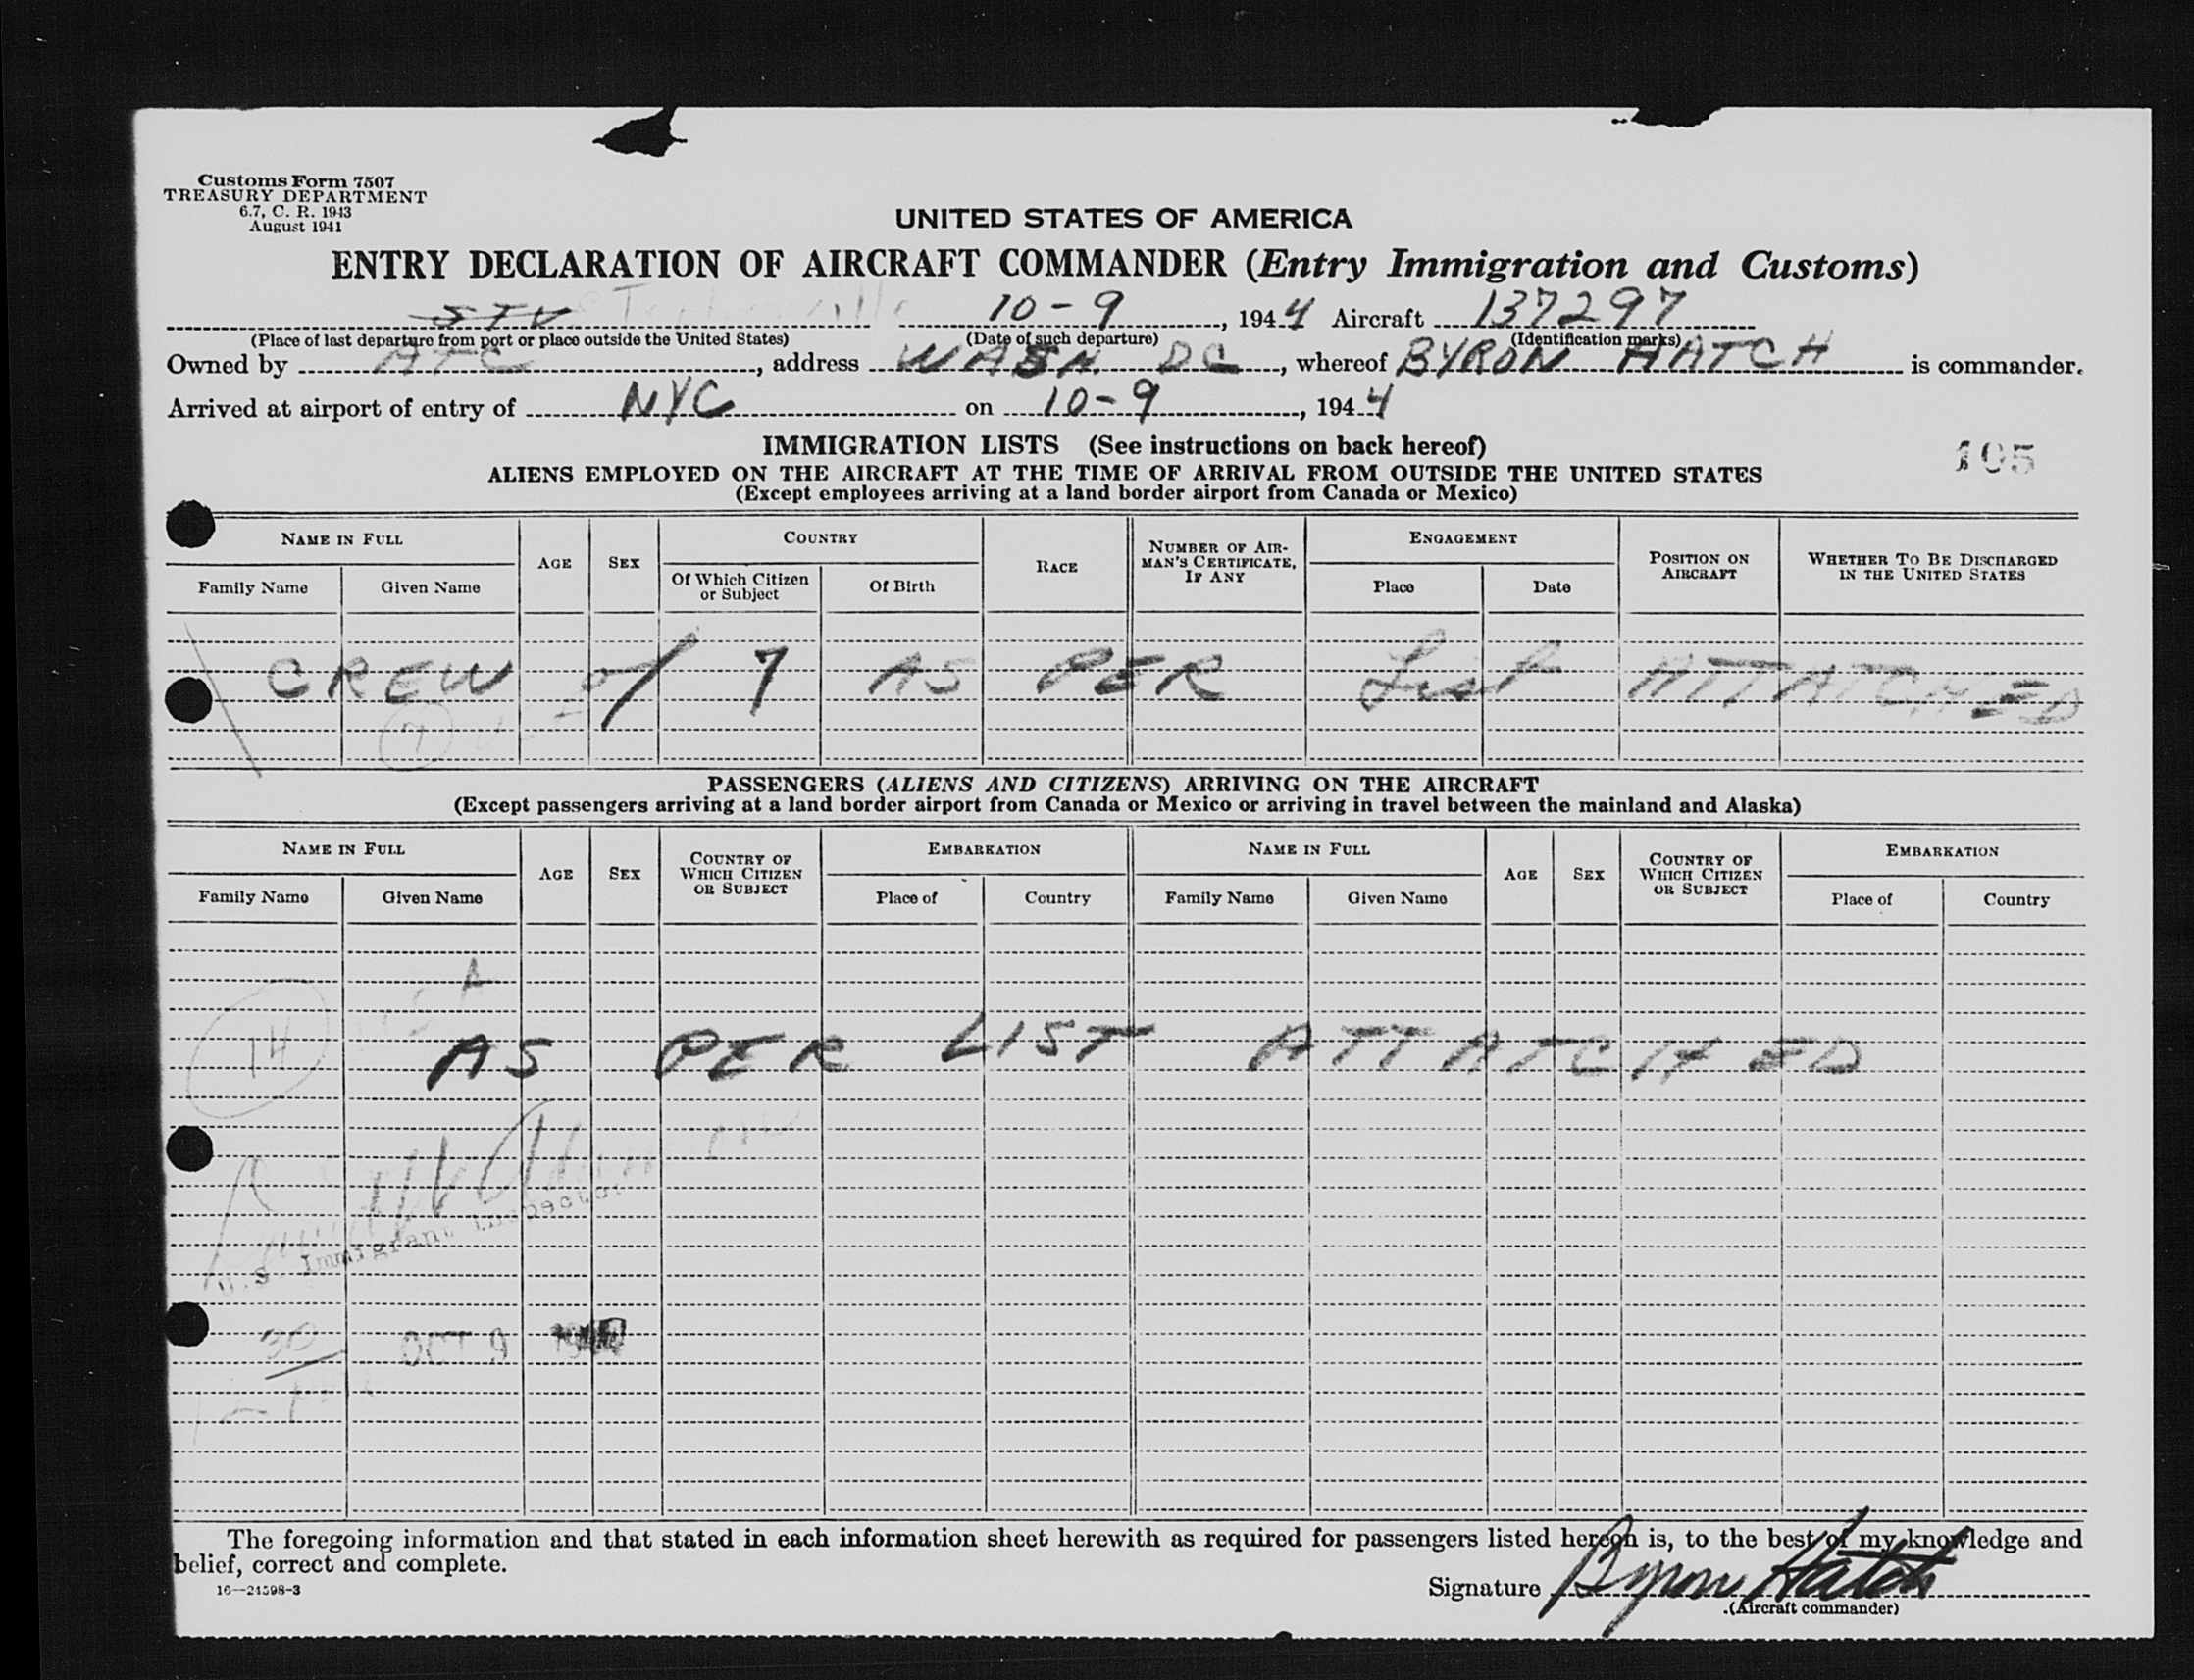 Customs Form 7507
TREASURY DEPARTMENT
6.7, C. R. 1943
August 1941
UNITED STATES OF AMERICA
ENTRY DECLARATION OF AIRCRAFT COMMANDER (Entry Immigration and Customs)
STV 10-9, 1944 Aircraft 137297
(Place of last departure from port or place outside the United States) (Date of such departure) (Identification marks)
Owned by ATC, address WASH. DC, whereof BYRON HATCH is commander.
Arrived at airport of entry of NYC on 10-9, 1944
IMMIGRATION LISTS (See instructions on back hereof)
105
ALIENS EMPLOYED ON THE AIRCRAFT AT THE TIME OF ARRIVAL FROM OUTSIDE THE UNITED STATES
(Except employees arriving at a land border airport from Canada or Mexico)
NAME IN FULL AGE SEX COUNTRY RACE NUMBER OF AIRMAN'S CERTIFICATE, IF ANY ENGAGEMENT POSITION ON AIRCRAFT WHETHER TO BE DISCHARGED IN THE UNITED STATES
Family Name Given Name Of Which Citizen or Subject Of Birth Place Date
CREW of 7 AS PER List ATTATCHED
7
PASSENGERS (ALIENS AND CITIZENS) ARRIVING ON THE AIRCRAFT
(Except passengers arriving at a land border airport from Canada or Mexico or arriving in travel between the mainland and Alaska)
NAME IN FULL AGE SEX COUNTRY OF WHICH CITIZEN OR SUBJECT EMBARKATION NAME IN FULL AGE SEX COUNTRY OF WHICH CITIZEN OR SUBJECT EMBARKATION
Family Name Given Name Place of Country Family Name Given Name Place of Country
14
AS PER LIST ATTATCHED
U.S. Immigrant Inspector
30 OCT 9 1944
The foregoing information and that stated in each information sheet herewith as required for passengers listed hereon is, to the best of my knowledge and
belief, correct and complete.
16—24598-3
Signature Byron Hatch
(Aircraft commander)